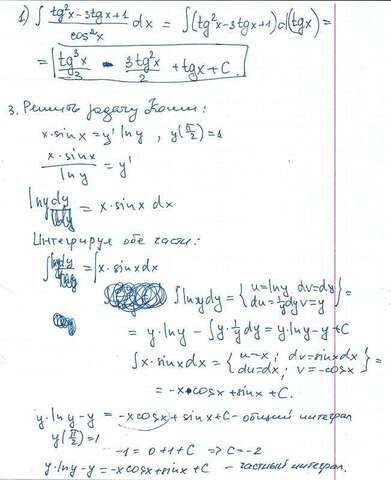 1) ∫ (tg²x-3tgx+1)/cos²x dx = ∫(tg²x-3tgx+1)d(tgx)=
= tg³x/3 - 3tg²x/2 + tgx + C.
3. Решить задачу Коши:
x·sinx = y' lny, y(π/2)=1
x·sinx/lny = y'
lny dy = x·sinx dx
Интегрируя обе части:
∫lny dy = ∫x·sinxdx
∫lnydy = {u=lny dv=dy
du=1/y dy v=y} =
= y·lny - ∫y·1/y dy = y·lny-y+C
∫x·sinxdx = {u=x; dv=sinxdx
du=dx; v=-cosx} =
= -x·cosx+sinx+C.
y·lny-y = -xcosx+sinx+C - общий интеграл
y(π/2)=1
-1 = 0+1+C => C=-2
y·lny-y=-xcosx+sinx+C - частный интеграл.